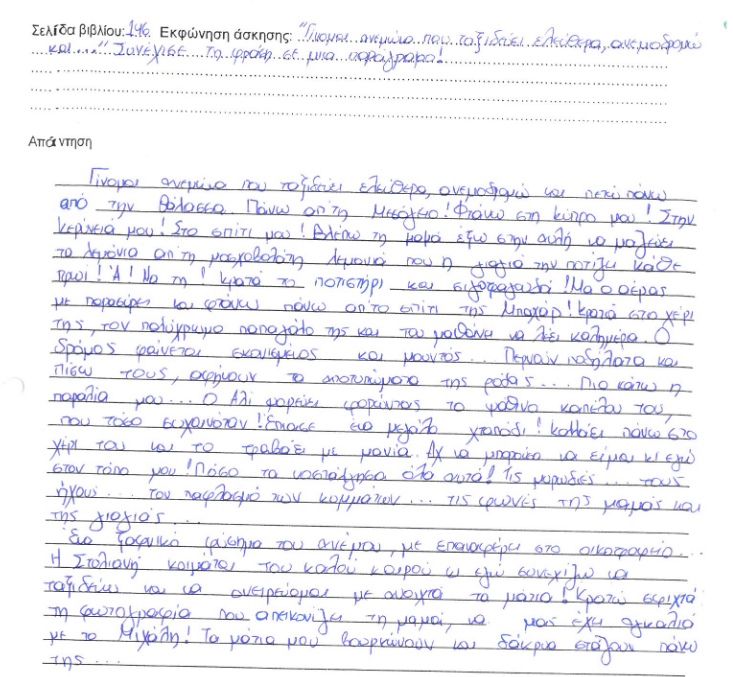 Σελίδα βιβλίου: 146. Εκφώνηση άσκησης: "Γίνομαι ανεμώνα που ταξιδεύει ελεύθερα, ανεμοδρομώ
και..." Συνέχισε τη φράση σε μια παράγραφο!
Απάντηση
Γίνομαι ανεμώνα που ταξιδεύει ελεύθερα, ανεμοδρομώ και πετώ πάνω
από την θάλασσα. Πάνω απ'τη Μεσόγειο! Φτάνω στη Κύπρο μου! Στην
Κερύνεια μου! Στο σπίτι μου! Βλέπω τη μαμά έξω στην αυλή να μαζεύει
τα λεμόνια απ'τη μοσχοβολάτη λεμονιά που η γιαγιά την ποτίζει κάθε
πρωί! Ά! Να τη! Κρατά το ποτιστήρι και σιγοτραγουδά! Μα ο αέρας
με παρασύρει και φτάνω πάνω απ'το σπίτι της Μπαχάρ! Κρατά στο χέρι
της, τον πολύχρωμο παπαγάλο της και του μαθαίνει να λέει καλημέρα. Ο
δρόμος φαίνεται σκονισμένος και μουντός... Περνούν ποδήλατα και
πίσω τους, αφήνουν τα αποτυπώματα της ρόδας... Πιο κάτω η
παραλία μου... Ο Αλί ψαρεύει φορώντας το ψάθινο καπέλο του,
που τόσο σιχαινόταν! Έπιασε ένα μεγάλο χταπόδι! Κολλάει πάνω στο
χέρι του και το τραβάει με μανία. Αχ να μπορούσα να είμαι κι εγώ
στον τόπο μου! Πόσο τα νοστάλγησα όλα αυτά! Τις μυρωδιές... τους
ήχους... τον παφλασμό των κυμμάτων... τις φωνές της μαμάς και
της γιαγιάς...
Ένα ξαφνικό φύσημα του ανέμου, με επαναφέρει στο οικοτροφείο...
Η Στυλιανή κοιμάται του καλού καιρού κι εγώ συνεχίζω να
ταξιδεύω και να ονειρεύομαι με ανοιχτά τα μάτια! Κρατώ σφιχτά
τη φωτογραφία που απεικονίζει τη μαμά, να μας έχει αγκαλιά
με το Μιχάλη! Τα μάτια μου βουρκώνουν και δάκρυα στάζουν πάνω
της...